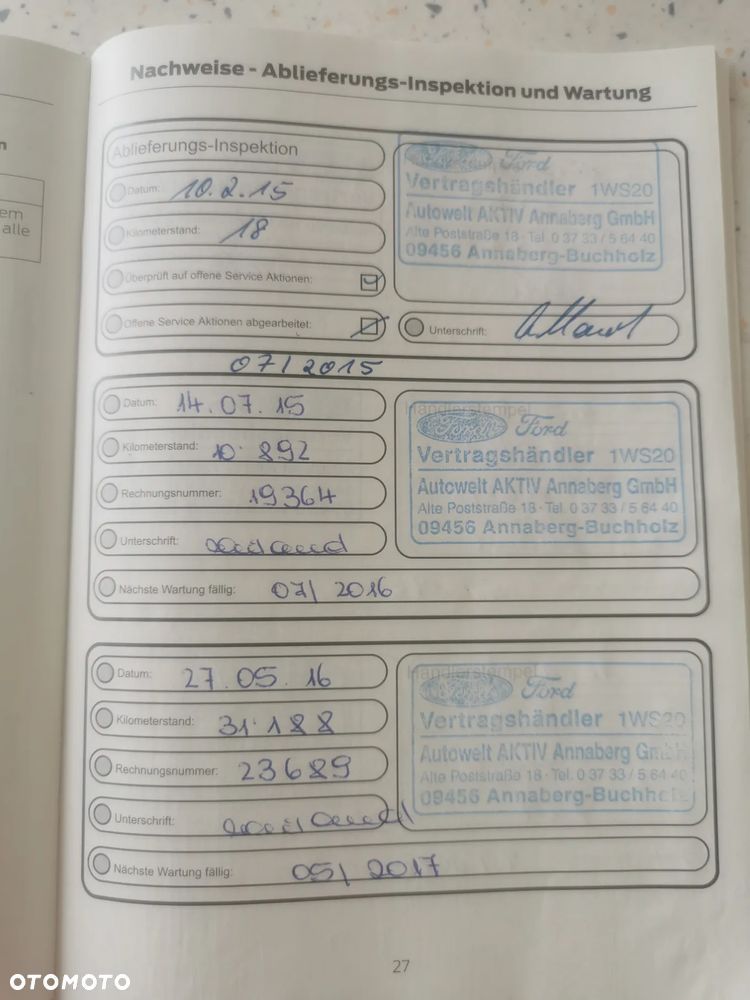 Nachweise - Ablieferungs-Inspektion und Wartung
n
em
alle
Ablieferungs-Inspektion
Datum: 10.2.15
Kilometerstand: 18
Überprüft auf offene Service Aktionen:
Offene Service Aktionen abgearbeitet:
Ford
Vertragshändler 1WS20
Autowelt AKTIV Annaberg GmbH
Alte Poststraße 18 · Tel. 0 37 33 / 5 64 40
09456 Annaberg-Buchholz
Unterschrift:
07/2015
Datum: 14.07.15
Kilometerstand: 10.892
Rechnungsnummer: 19364
Unterschrift:
Händlerstempel
Ford Ford
Vertragshändler 1WS20
Autowelt AKTIV Annaberg GmbH
Alte Poststraße 18 · Tel. 0 37 33 / 5 64 40
09456 Annaberg-Buchholz
Nächste Wartung fällig: 07/ 2016
Datum: 27.05.16
Kilometerstand: 31.188
Rechnungsnummer: 23689
Unterschrift:
Händlerstempel
Ford Ford
Vertragshändler 1WS20
Autowelt AKTIV Annaberg GmbH
Alte Poststraße 18 · Tel. 0 37 33 / 5 64 40
09456 Annaberg-Buchholz
Nächste Wartung fällig: 05/ 2017
27
OTOMOTO